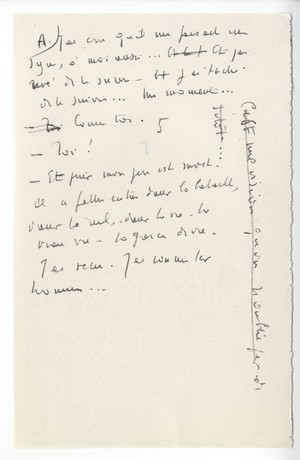 A. J'ai cru qu'il me faisait un
signe, à moi aussi... Et j'ai
rêvé de le suivre - Et j'ai tâché
de le suivre... Un moment...
- Comme toi. 5
- Toi !
- Et puis mon père est mort.
Il a fallu entrer dans la bataille,
dans la vie - la
vraie vie - la garce de vie.
J'ai vécu. J'ai connu les
hommes...
C'est une vision qu'on n'oublie pas si
tôt...